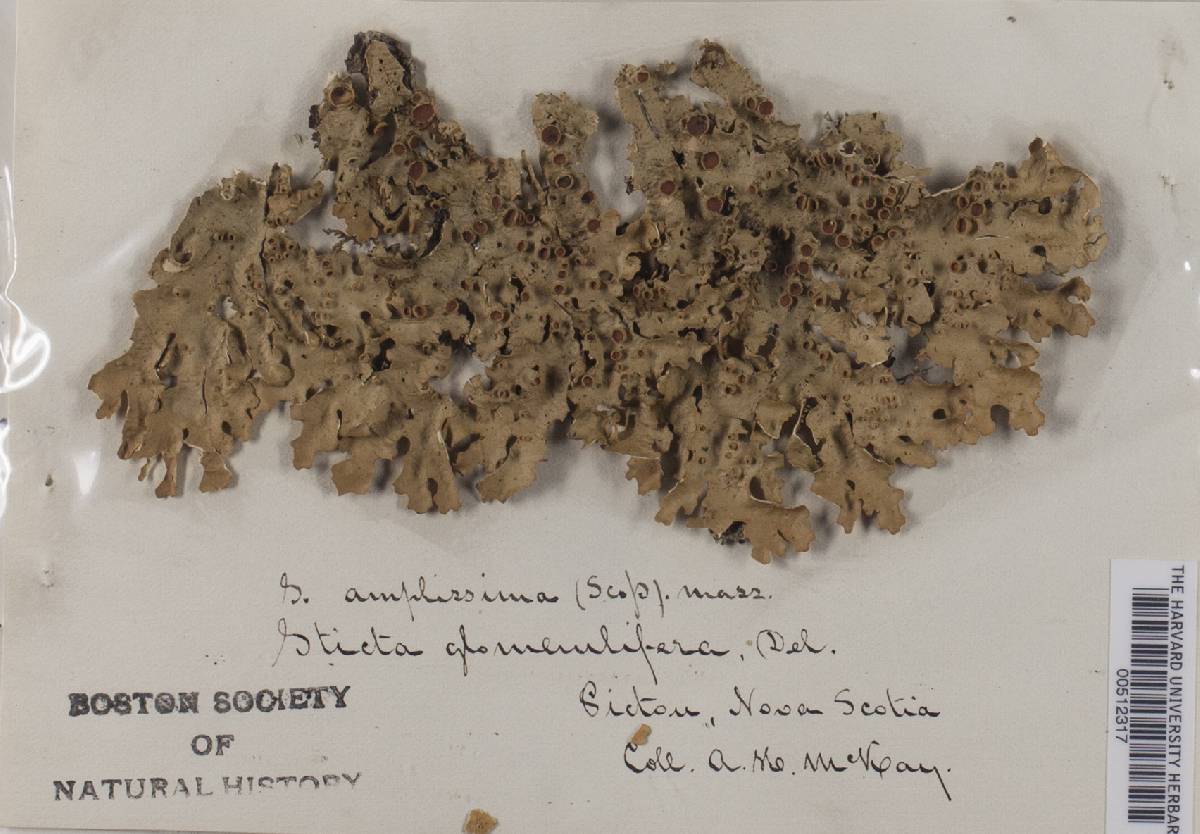 S. amplissima (Scop). Mass.
Sticta glomerulifera, Del.
Pictou, Nova Scotia
Coll. A. H. McKay.
BOSTON SOCIETY
OF
NATURAL HISTORY
THE HARVARD UNIVERSITY HERBAR
00512317